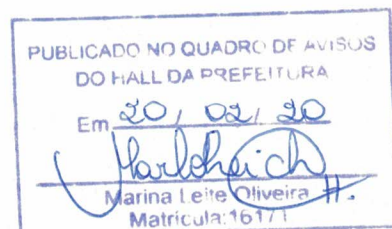 PUBLICADO NO QUADRO DE AVISOS
DO HALL DA PREFEITURA
Em 20 / 02 / 20
Marina Leite Oliveira H.
Matrícula: 1617/1